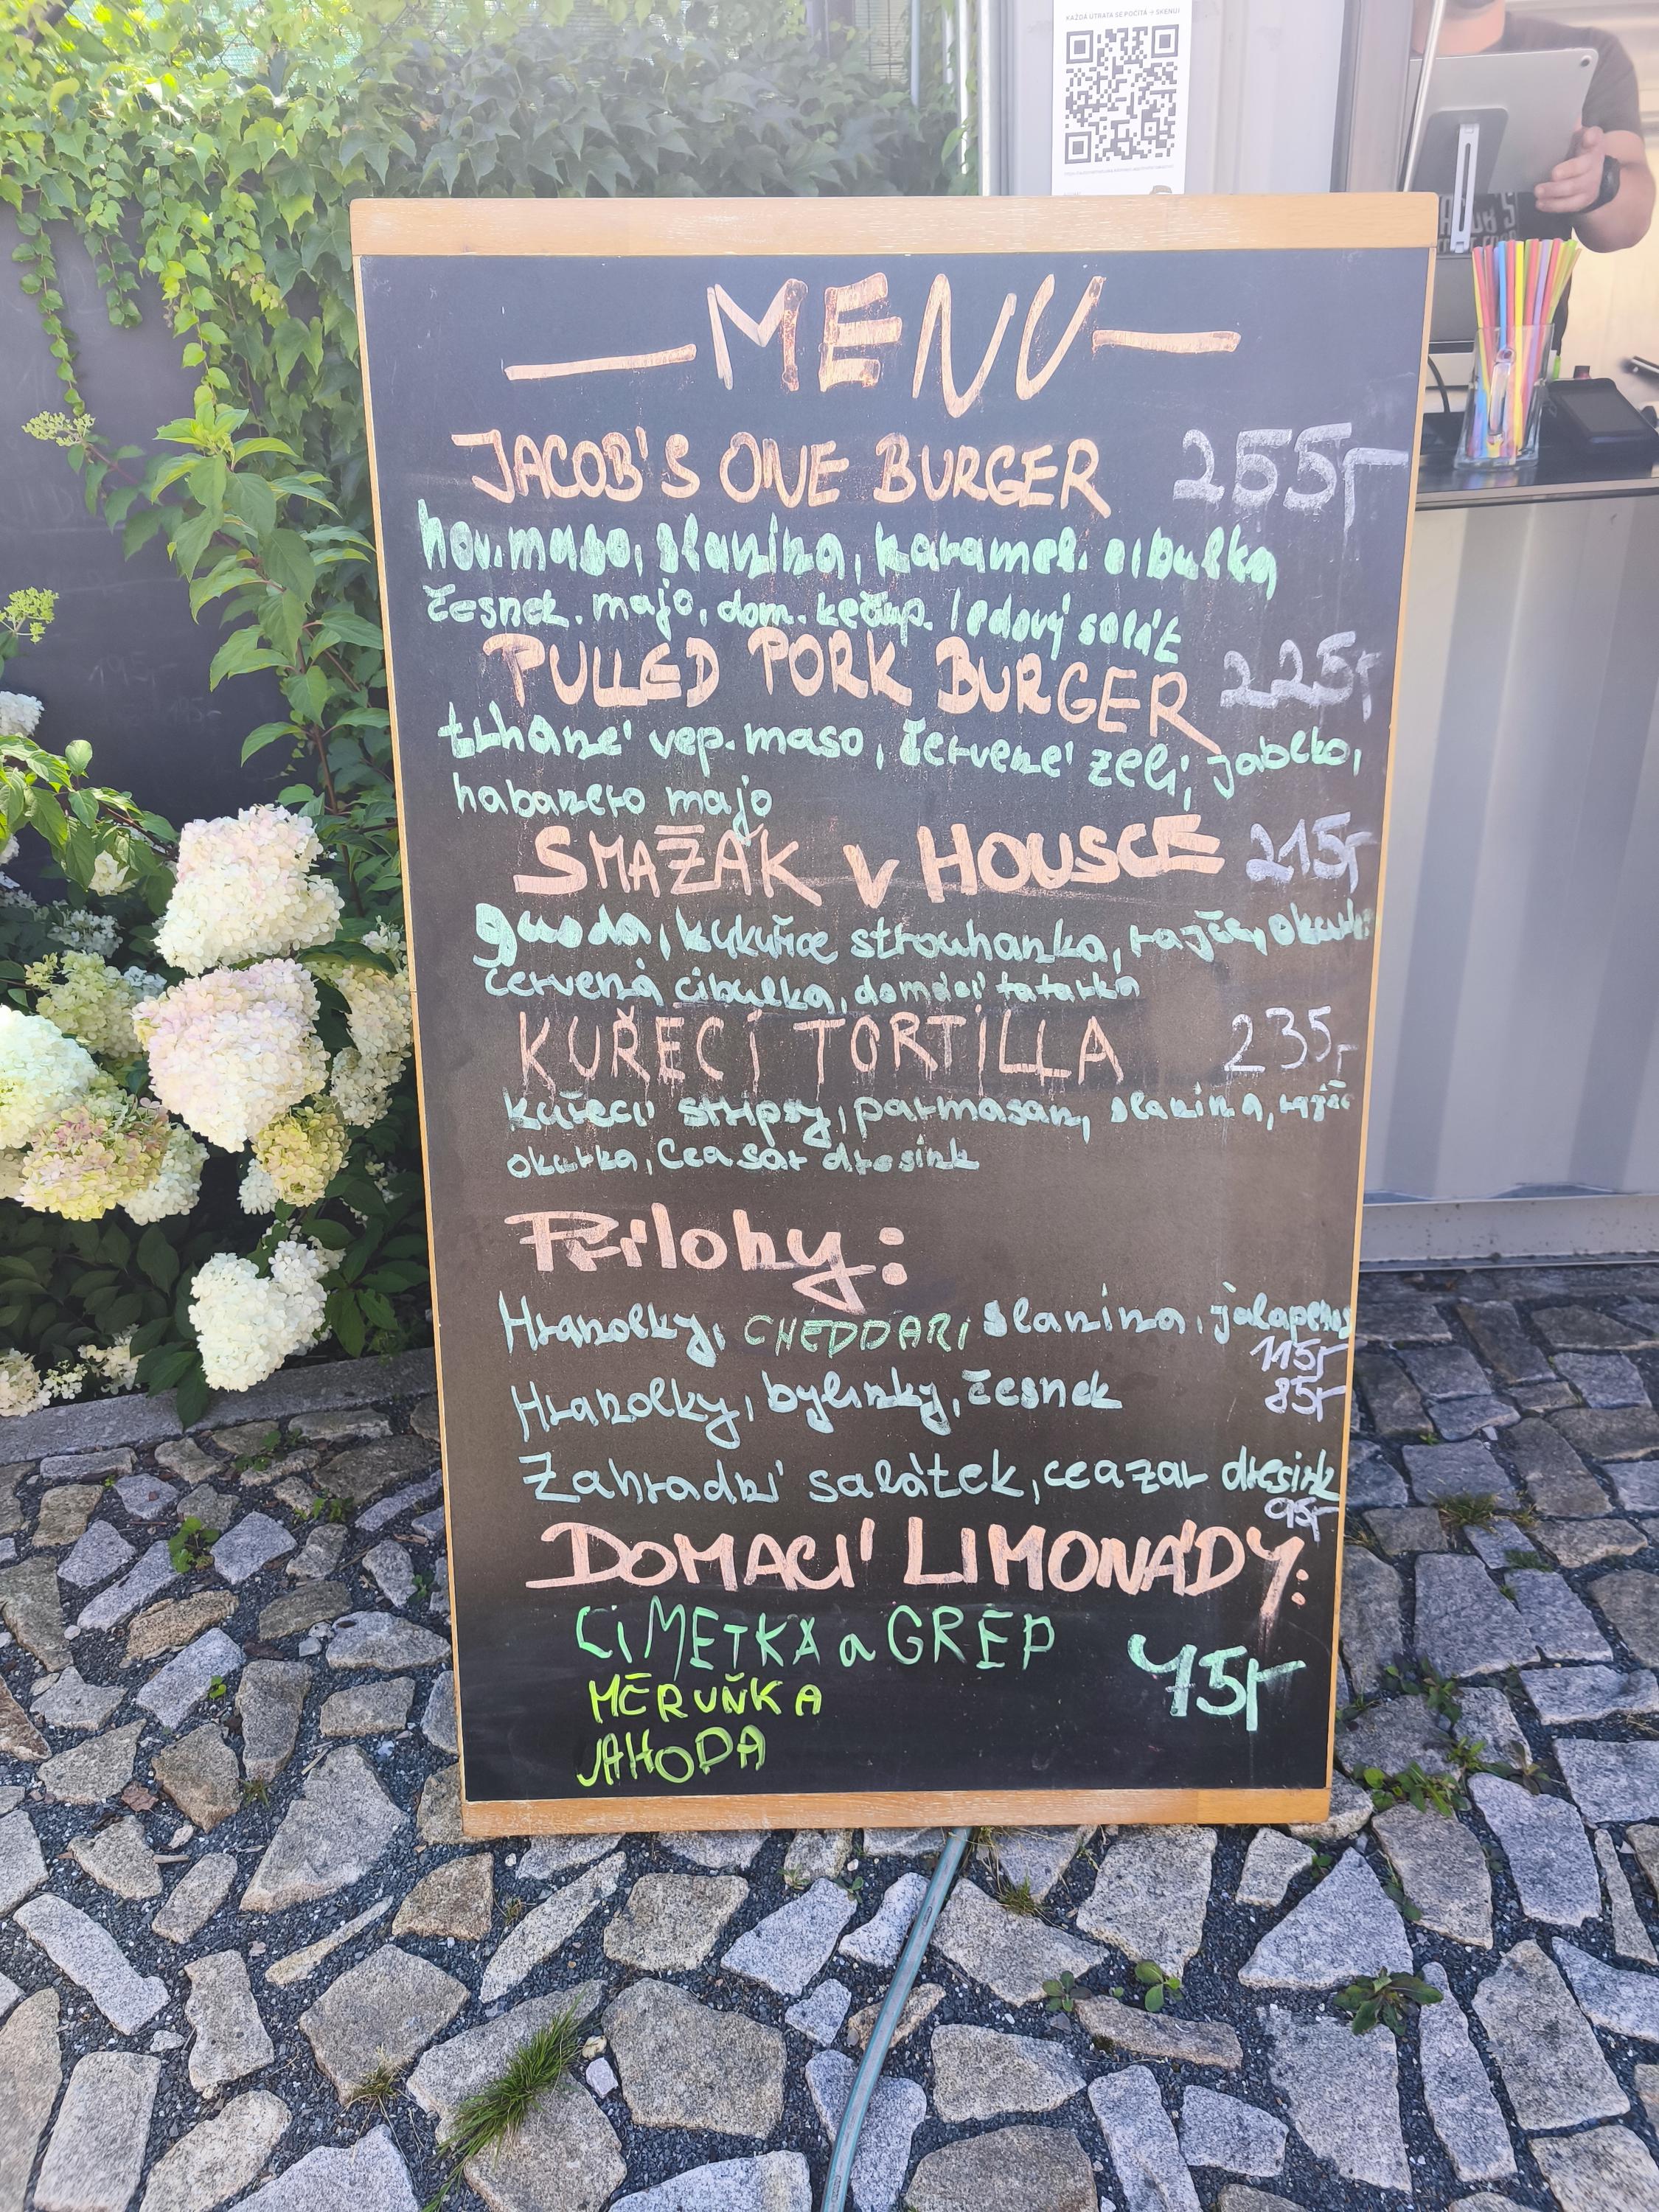 KAŽDÁ ÚTRATA SE POČÍTÁ → SKENUJ
MENU
JACOB'S ONE BURGER 255,-
hov. maso, slanina, karamel. cibulka
česnek. majo, dom. kečup. ledový salát
PULLED PORK BURGER 225,-
trhané vep. maso, červené zelí, jablko,
habanero majo
SMAŽÁK V HOUSCE 215,-
gouda, kukuřice strouhanka, rajče, okurka
červená cibulka, domácí tatarka
KUŘECÍ TORTILLA 235,-
kuřecí stripsy, parmasan, slanina, rajče
okurka, Ceasar dresink
Přílohy:
Hranolky, CHEDDAR, slanina, jalapenos
115,-
Hranolky, bylinky, česnek 85,-
Zahradní salátek, ceazar dresink
95,-
DOMACÍ LIMONÁDY:
LIMETKA a GREP
MERUŇKA 75,-
JAHODA